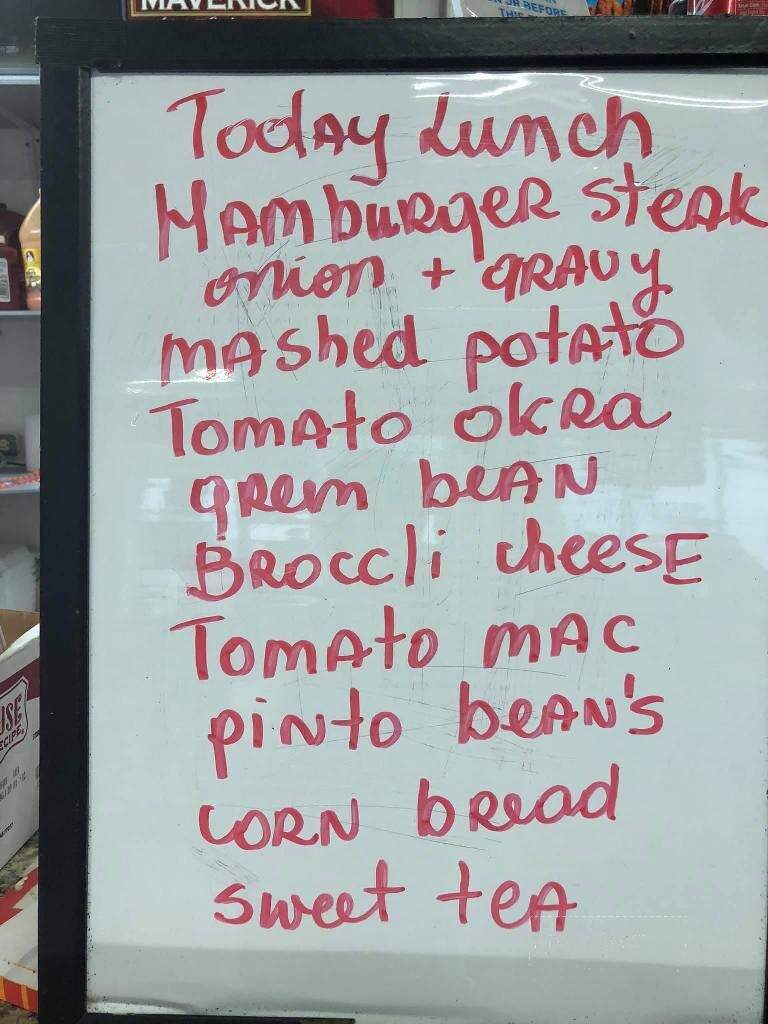 MAVERICK
OR BEFORE
THIS
Today Lunch
Hamburger steak
onion + gravy
mashed potato
Tomato okra
grem bean
Broccli cheese
Tomato mac
pinto bean's
corn bread
sweet tea
USE
ECIPE